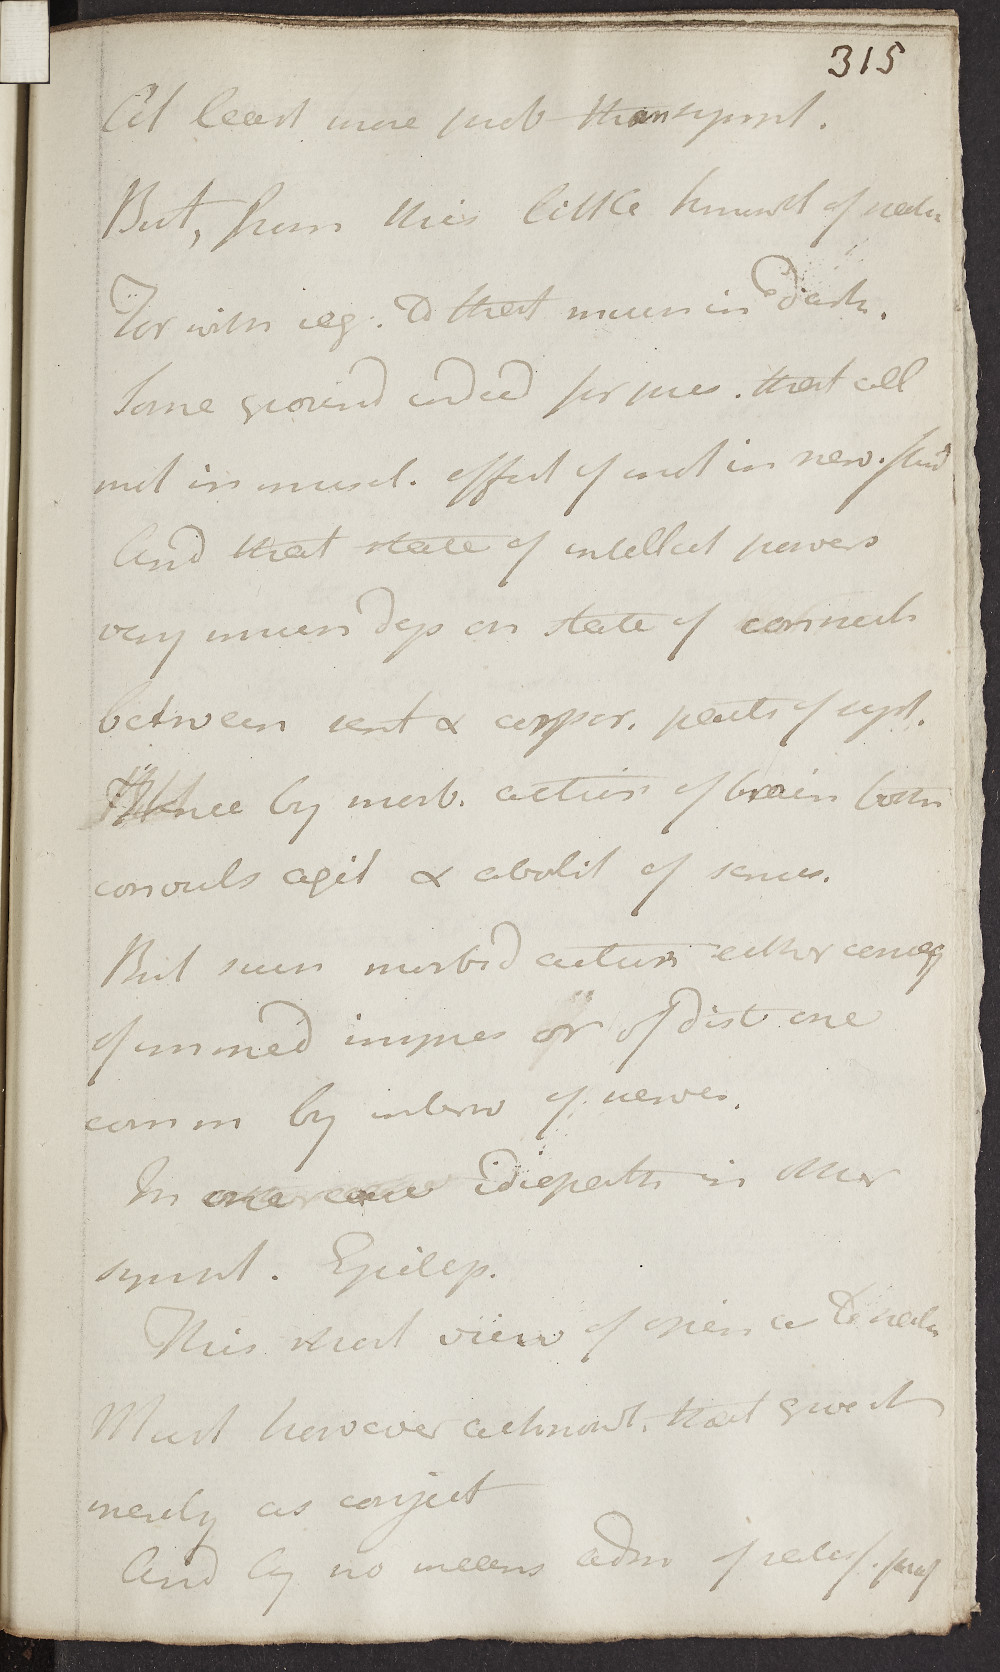 315
At least more prob than sympt.
But, from this little knowl of natu
For with reg. to that much in dark.
Some ground indeed for pres. that all
mot in muscl. effect of mot in nerv. fluid
And that state of intellect powers
very much dep on state of connect
between sent & corpor. parts of syst.
Hence by morb. action of brain both
convuls agit & abolit of senses.
But such morbid action either conseq
of immed impres or of dist one
comm by interv of nerves.
In one case idiopath in other
sympt. Epilep.
This short view of opin as to natu
Must however acknowl. that give it
merely as conject
And by no means adm of satisf. proof